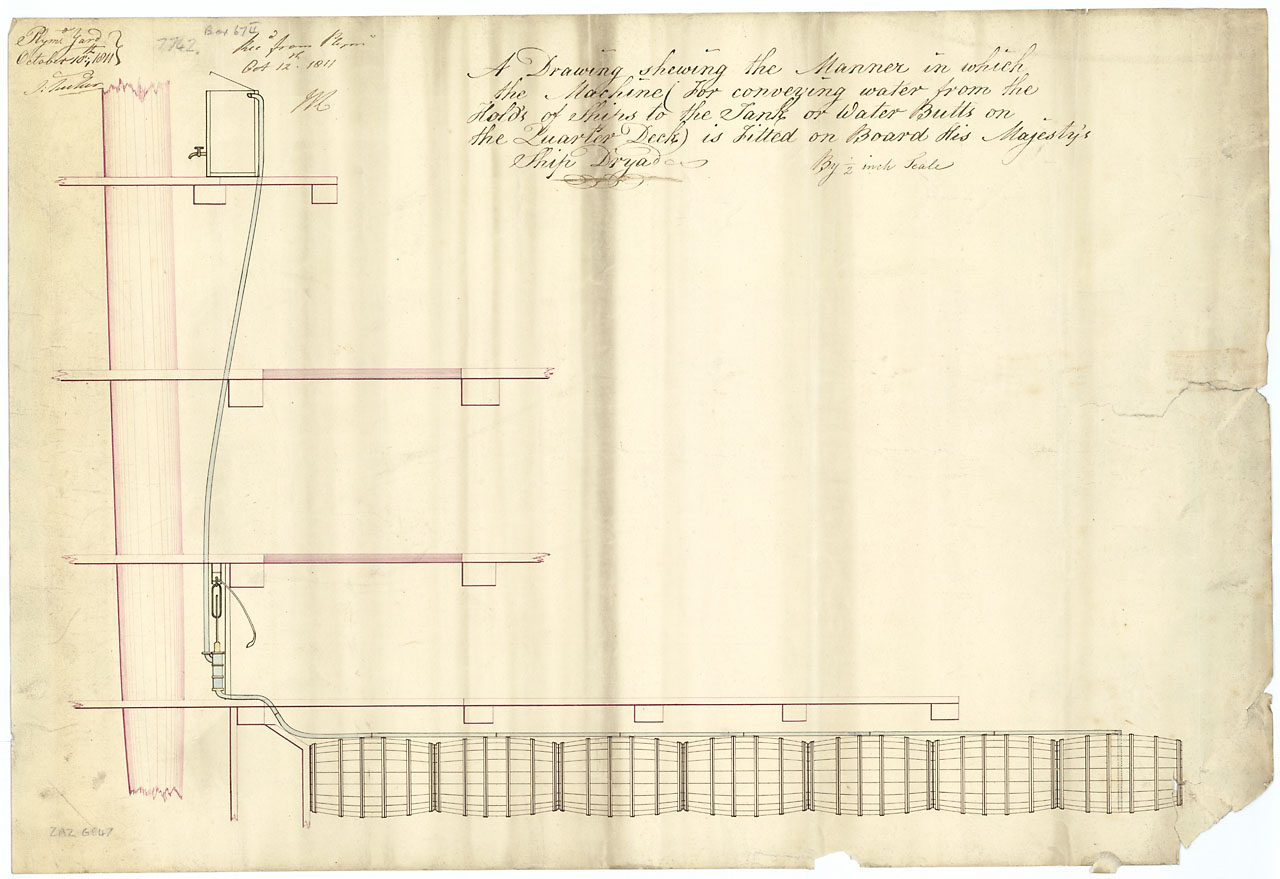 Plymo. Yard
October 10th, 1811
J. Tucker
7742.
Box 67
Recd from Plymo
Oct 12th. 1811
A Drawing shewing the Manner in which
the Machine (For conveying water from the
Holds of Ships to the Tank or Water Butts on
the Quarter Deck) is Fitted on Board His Majesty's
Ship Dryad
By ½ inch Scale
ZAZ 6847